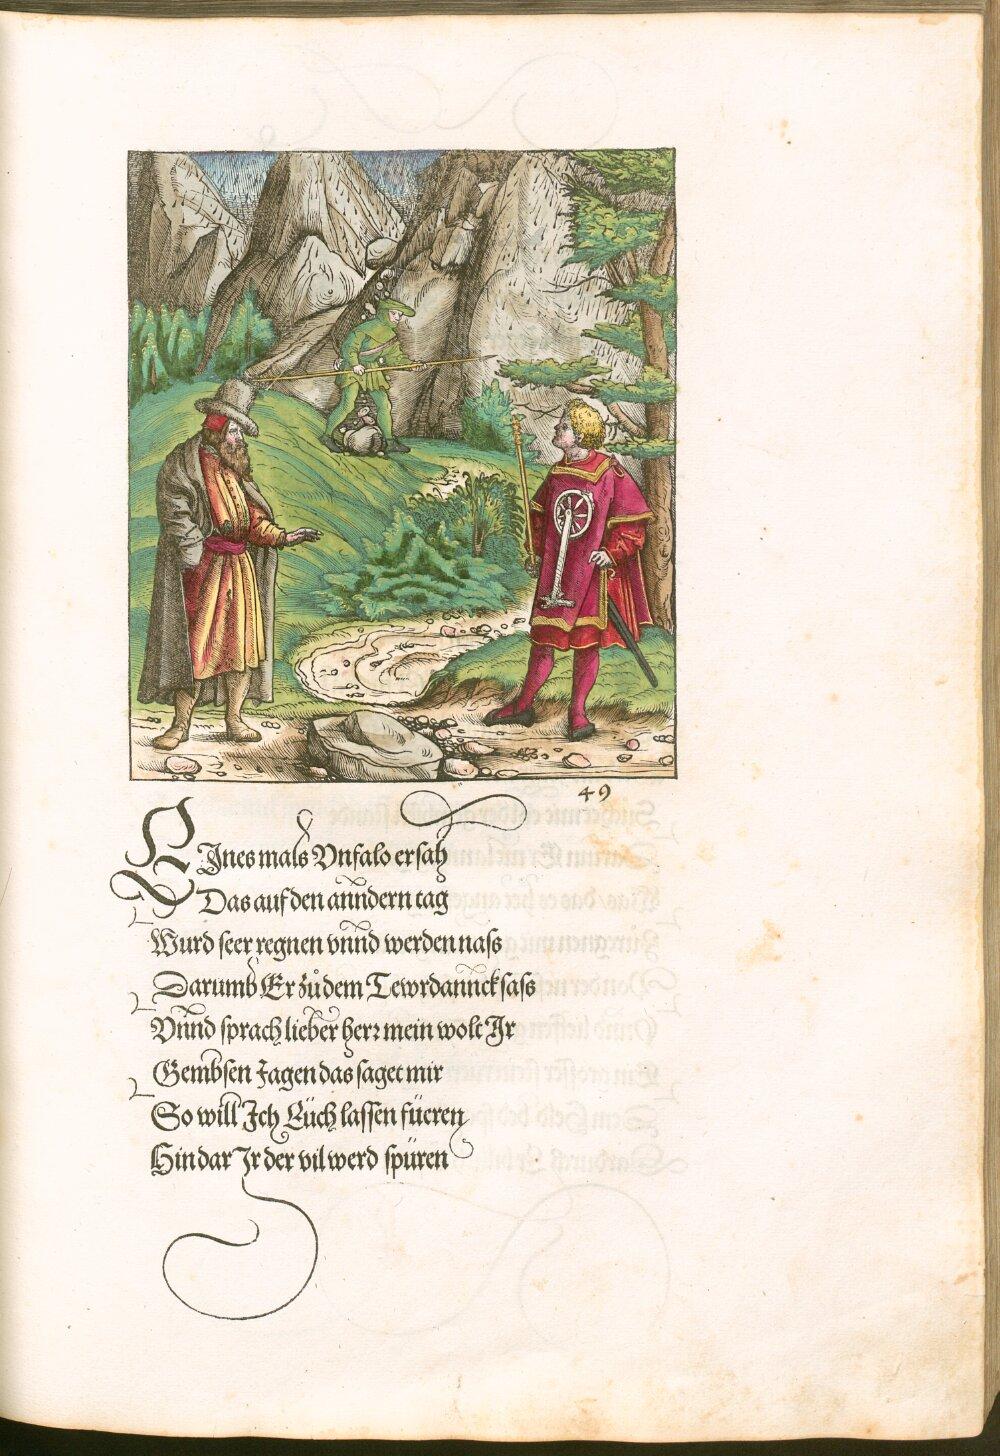 49
Eines mals Vnfalo ersah
Das auf den anndern tag
Wurd seer regnen vnnd werden nass
Darumb Er zůdem Tewrdannck sass
Vnnd sprach lieber herr mein wolt Ir
Gembsen Jagen das saget mir
So will Ich Eüch lassen füeren
Hin dar Ir der vil werd spüren